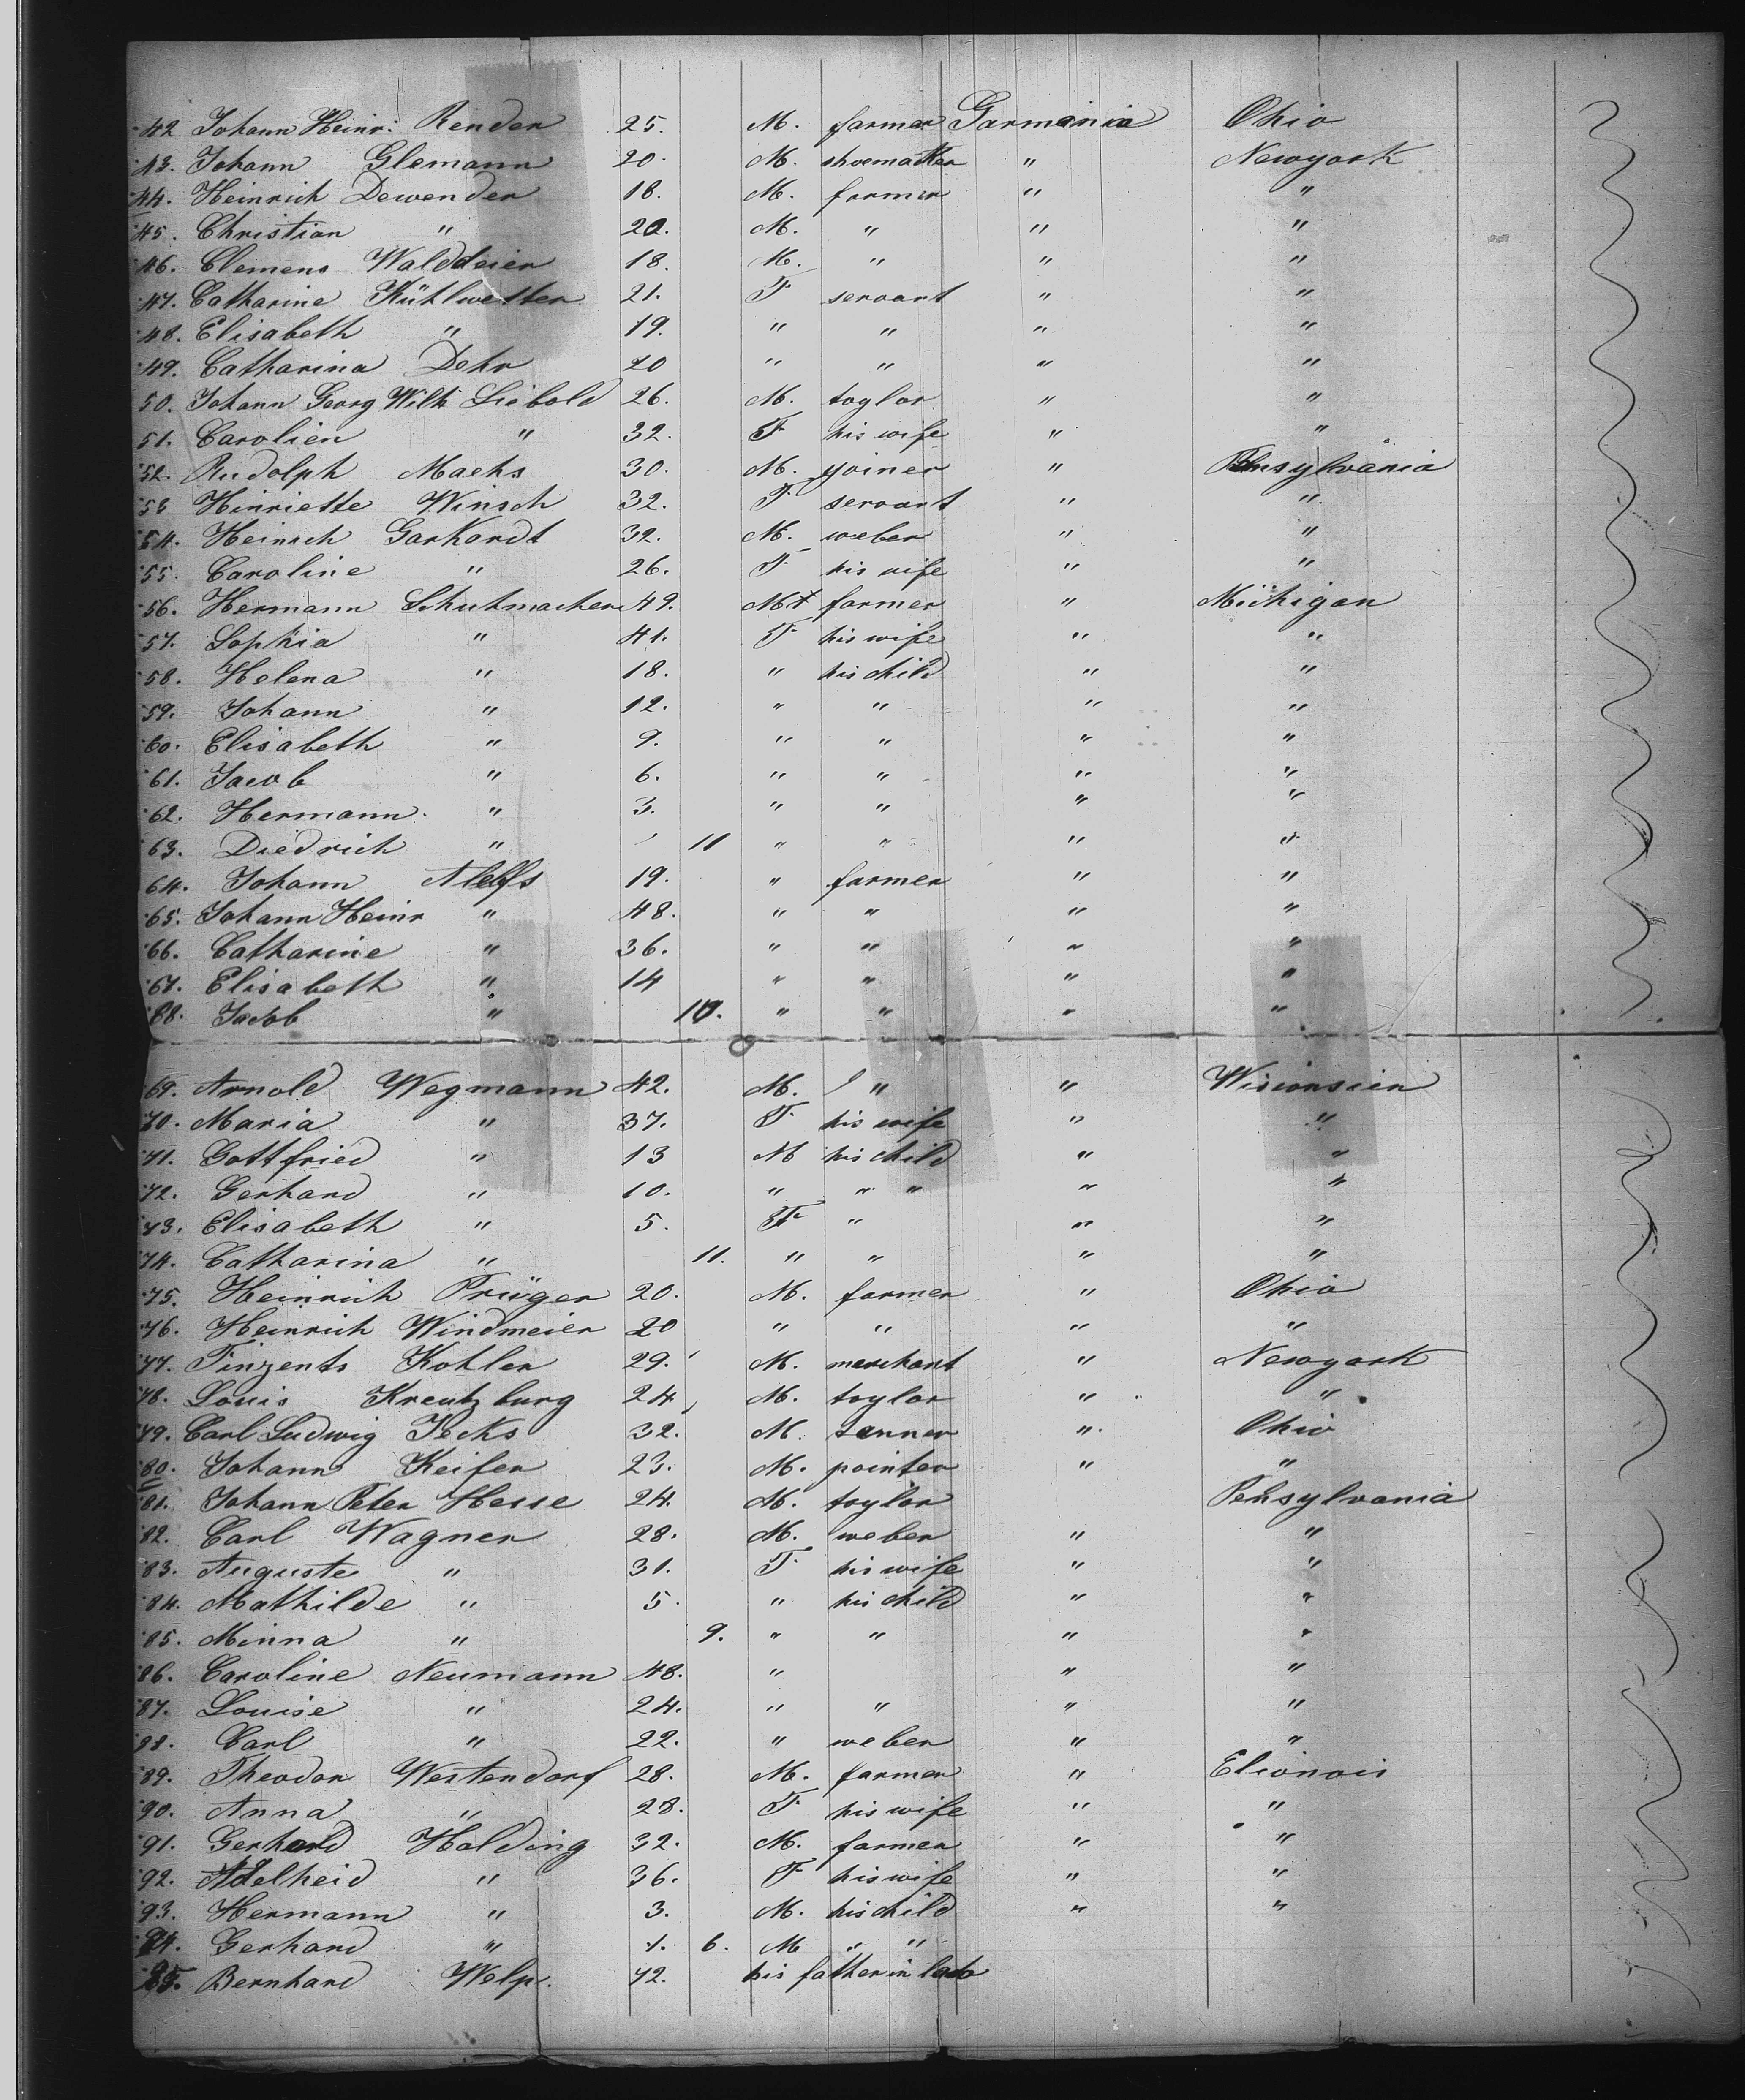 42 Johann Heinr: Render 25. M. farmer Garmania Ohio
43. Johann Glemann 20. M. shoemaker " Newyork
44. Heinrich Dewender 18. M. farmer " "
45. Christian " 20. M. " " "
46. Clemens Waldeier 18. M. " " "
47. Catharine Kühlwetter 21. F servant " "
48. Elisabeth " 19. " " " "
49. Catharina Dehr 20 " " " "
50. Johann Georg Wilh Siebold 26. M. toylor " "
51. Carolien " 32. F his wife " "
52. Rudolph Machs 30. M. yoiner " Pensylvania
53 Hinriette Winsch 32. F servant " "
54. Heinrch Garkardt 32. M. weber " "
55. Caroline " 26. F his wife " "
56. Hermann Schuhmacher 49. M farmer " Michigan
57. Sophia " 41. F his wife " "
58. Helena " 18. " his child " "
59. Johann " 12. " " " "
60. Elisabeth " 9. " " " "
61. Jacob " 6. " " " "
62. Hermann " 3. " " " "
63. Diedrich " 11 " " " "
64. Johann Aleffs 19. " farmer " "
65. Johann Heinr " 48. " " " "
66. Catharine " 36. " " " "
67. Elisabeth " 14 " " " "
68. Jacob " 10. " " " "
69. Arnold Wegmann 42. M. " " Wisionsien
70. Maria " 37. F his wife " "
71. Gottfried " 13 M his child " "
72. Gerhard " 10. " " " " "
73. Elisabeth " 5. F " " "
74. Catharina " 11. " " " "
75. Heinrich Prüger 20. M. farmer " Ohio
76. Heinrich Windmeier 20 " " " "
77. Finzents Kohler 29. M. merchant " Newyork
78. Louis Kreutzburg 24 M. toylor " "
79. Carl Ludwig Jecks 32. M. tanner " Ohio
80. Johann Keifer 23. M. pointer " "
81. Johann Peter Hesse 24. M. toylor Pensylvania
82. Carl Wagner 28. M. weber " "
83. Auguste " 31. F his wife " "
84. Mathilde " 5. " his child " "
85. Minna " 9. " " " "
86. Caroline Neumann 48. " " "
87. Louise " 24. " " " "
88. Carl " 22. " weber " "
89. Theodor Westendorf 28. M. farmer " Elionois
90. Anna " 28. F his wife " "
91. Gerhard Holding 32. M. farmer " "
92. Adelheid " 36. F his wife " "
93. Hermann " 3. M. his child " "
94. Gerhard " 1. 6. M " "
95. Bernhard Welp. 72. his father in law